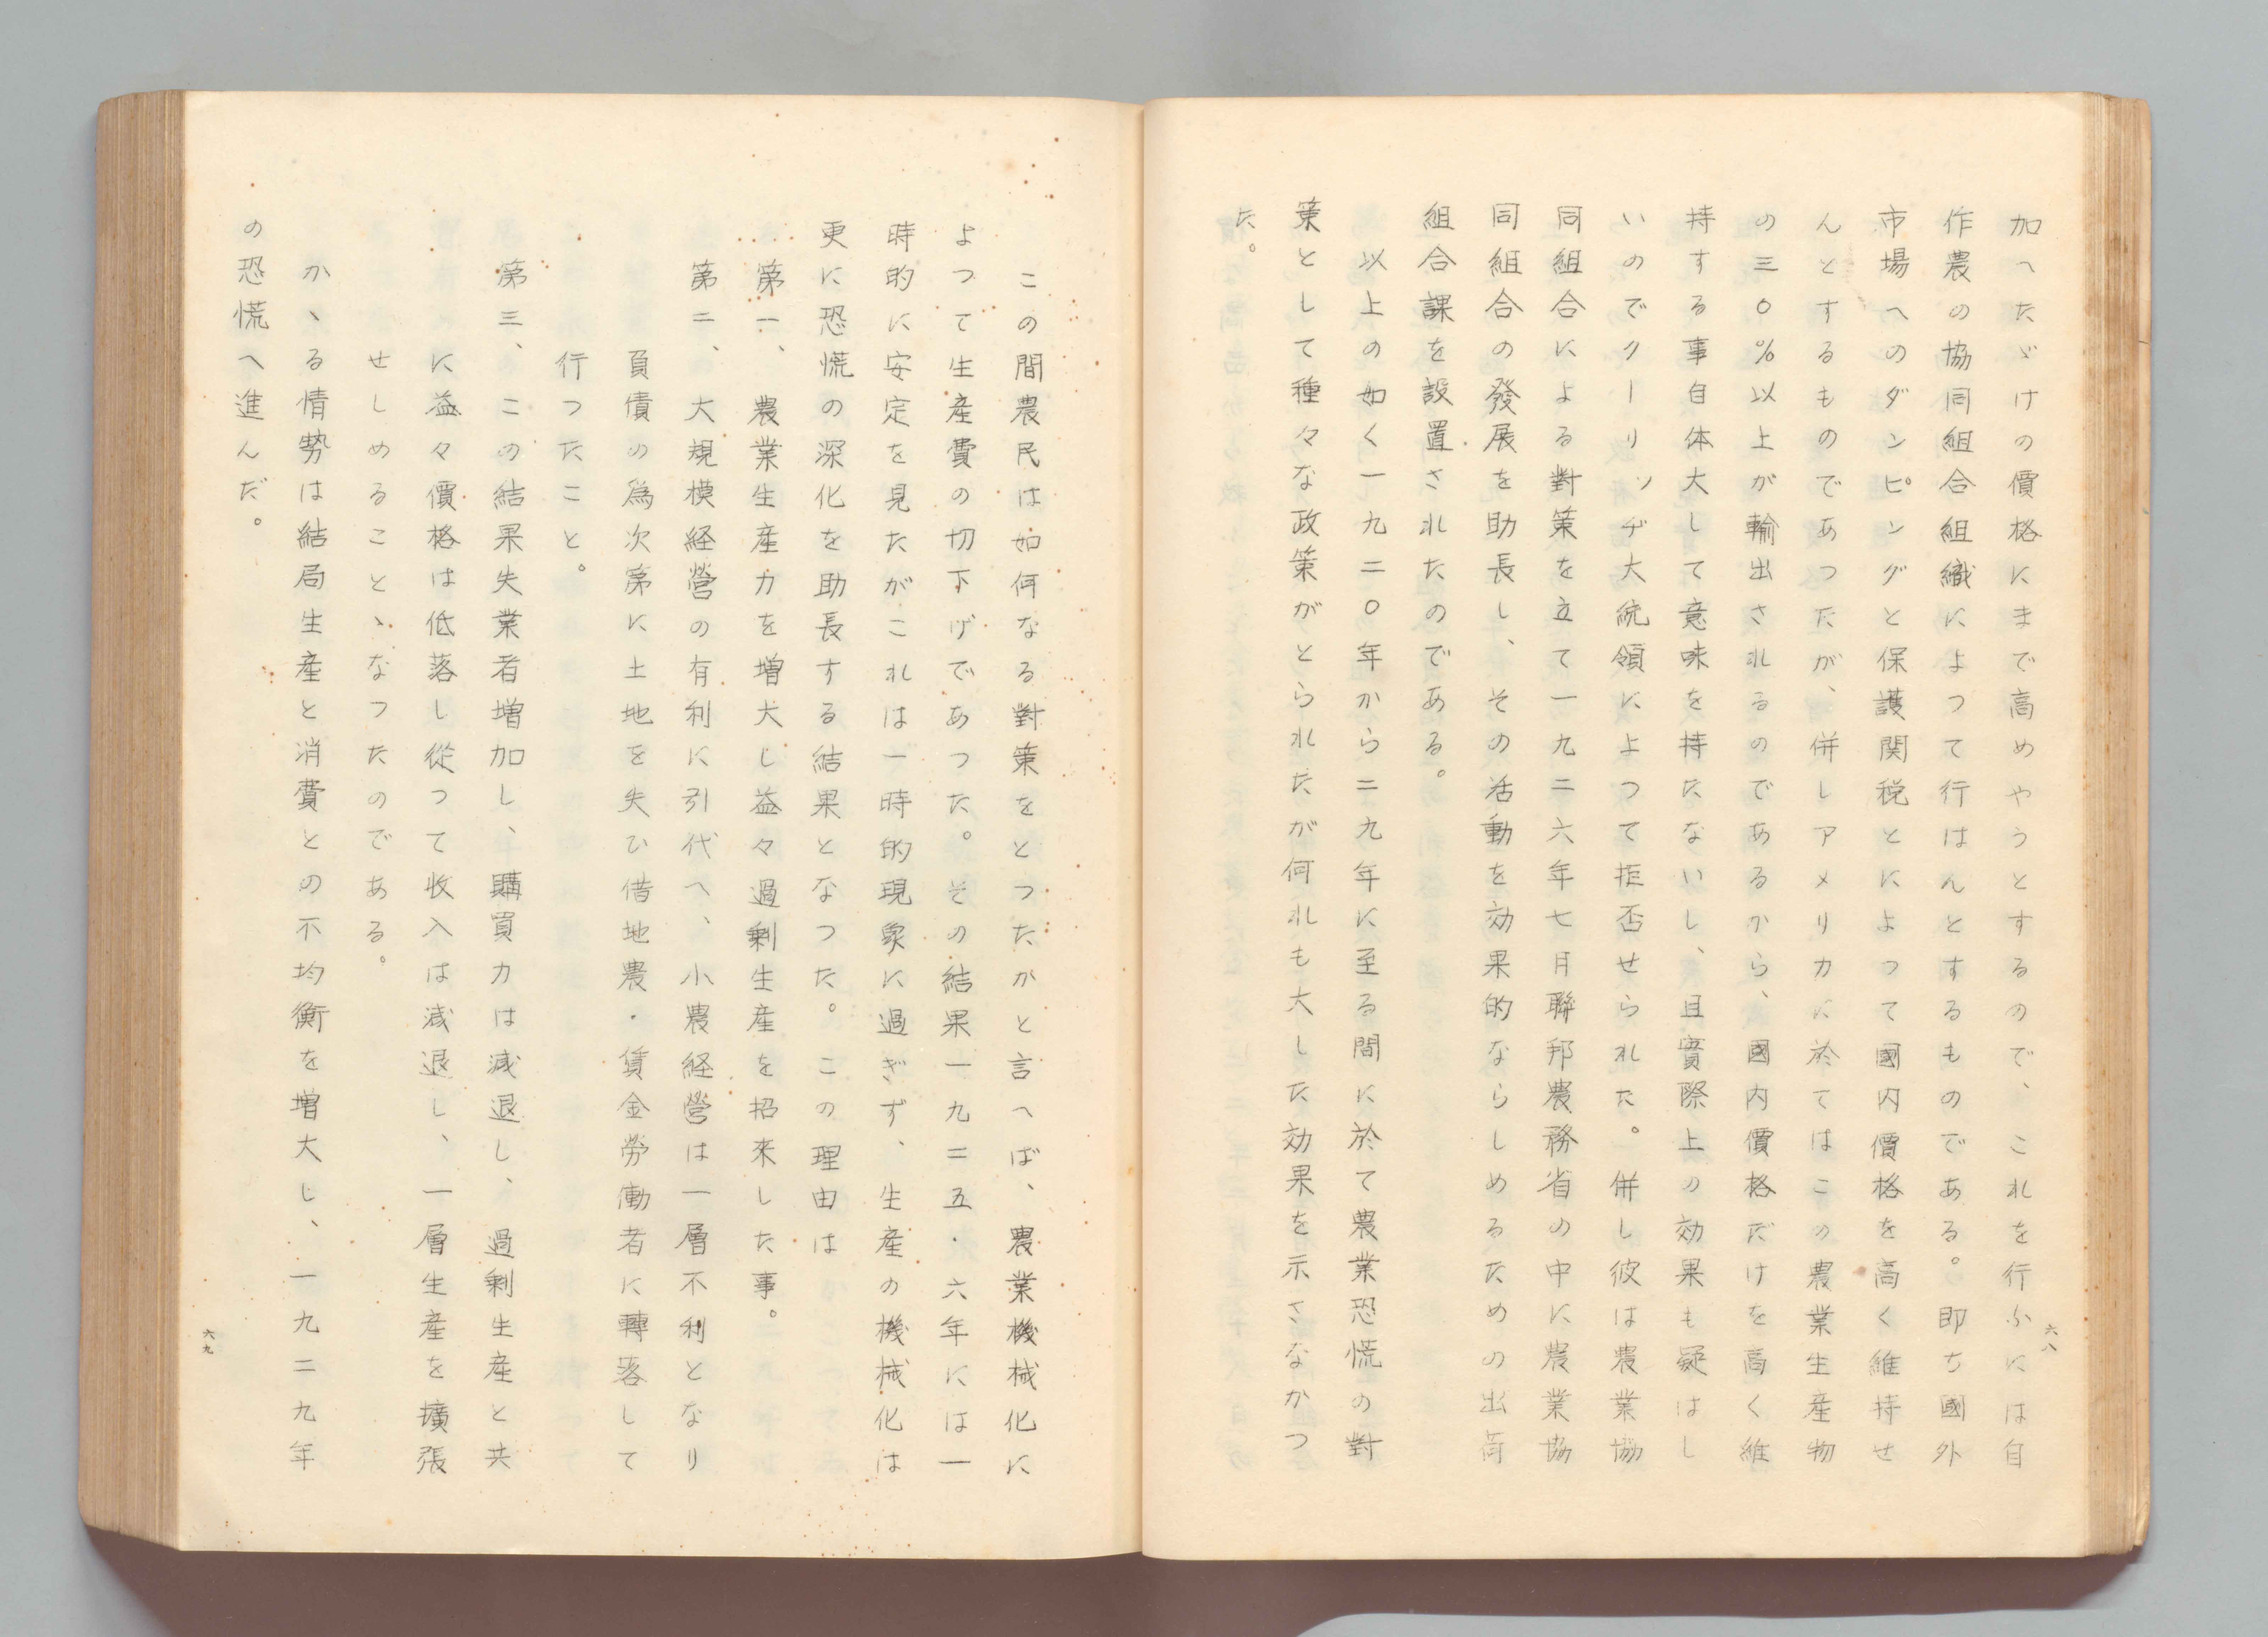 加へたゞけの價格にまで高めやうとするので、これを行ふには自
作農の協同組合組織によつて行はんとするものである。即ち國外
市場へのダンピングと保護関税とによつて國内價格を高く維持せ
んとするものであつたが、併しアメリカに於てはこの農業生産物
の三〇％以上が輸出されるのであるから、國内價格だけを高く維
持する事自体大して意味を持たないし、且實際上の効果も疑はし
いのでクーリッヂ大統領によつて拒否せられた。併し彼は農業協
同組合による對策を立て一九二六年七月聯邦農務省の中に農業協
同組合の發展を助長し、その活動を効果的ならしめるための出荷
組合課を設置されたのである。
以上の如く一九二〇年から二九年に至る間に於て農業恐慌の對
策として種々な政策がとられたが何れも大した効果を示さなかつ
た。
六八
この間農民は如何なる對策をとつたかと言へば、農業機械化に
よつて生産費の切下げであつた。その結果一九二五・六年には一
時的に安定を見たがこれは一時的現象に過ぎず、生産の機械化は
更に恐慌の深化を助長する結果となつた。この理由は
第一、農業生産力を増大し益々過剰生産を招来した事。
第二、大規模経営の有利に引代へ、小農経営は一層不利となり
負債の為次第に土地を失ひ借地農・賃金労働者に轉落して
行つたこと。
第三、この結果失業者増加し、購買力は減退し、過剰生産と共
に益々價格は低落し從つて收入は減退し、一層生産を擴張
せしめることゝなつたのである。
かゝる情勢は結局生産と消費との不均衡を増大し、一九二九年
の恐慌へ進んだ。
六九